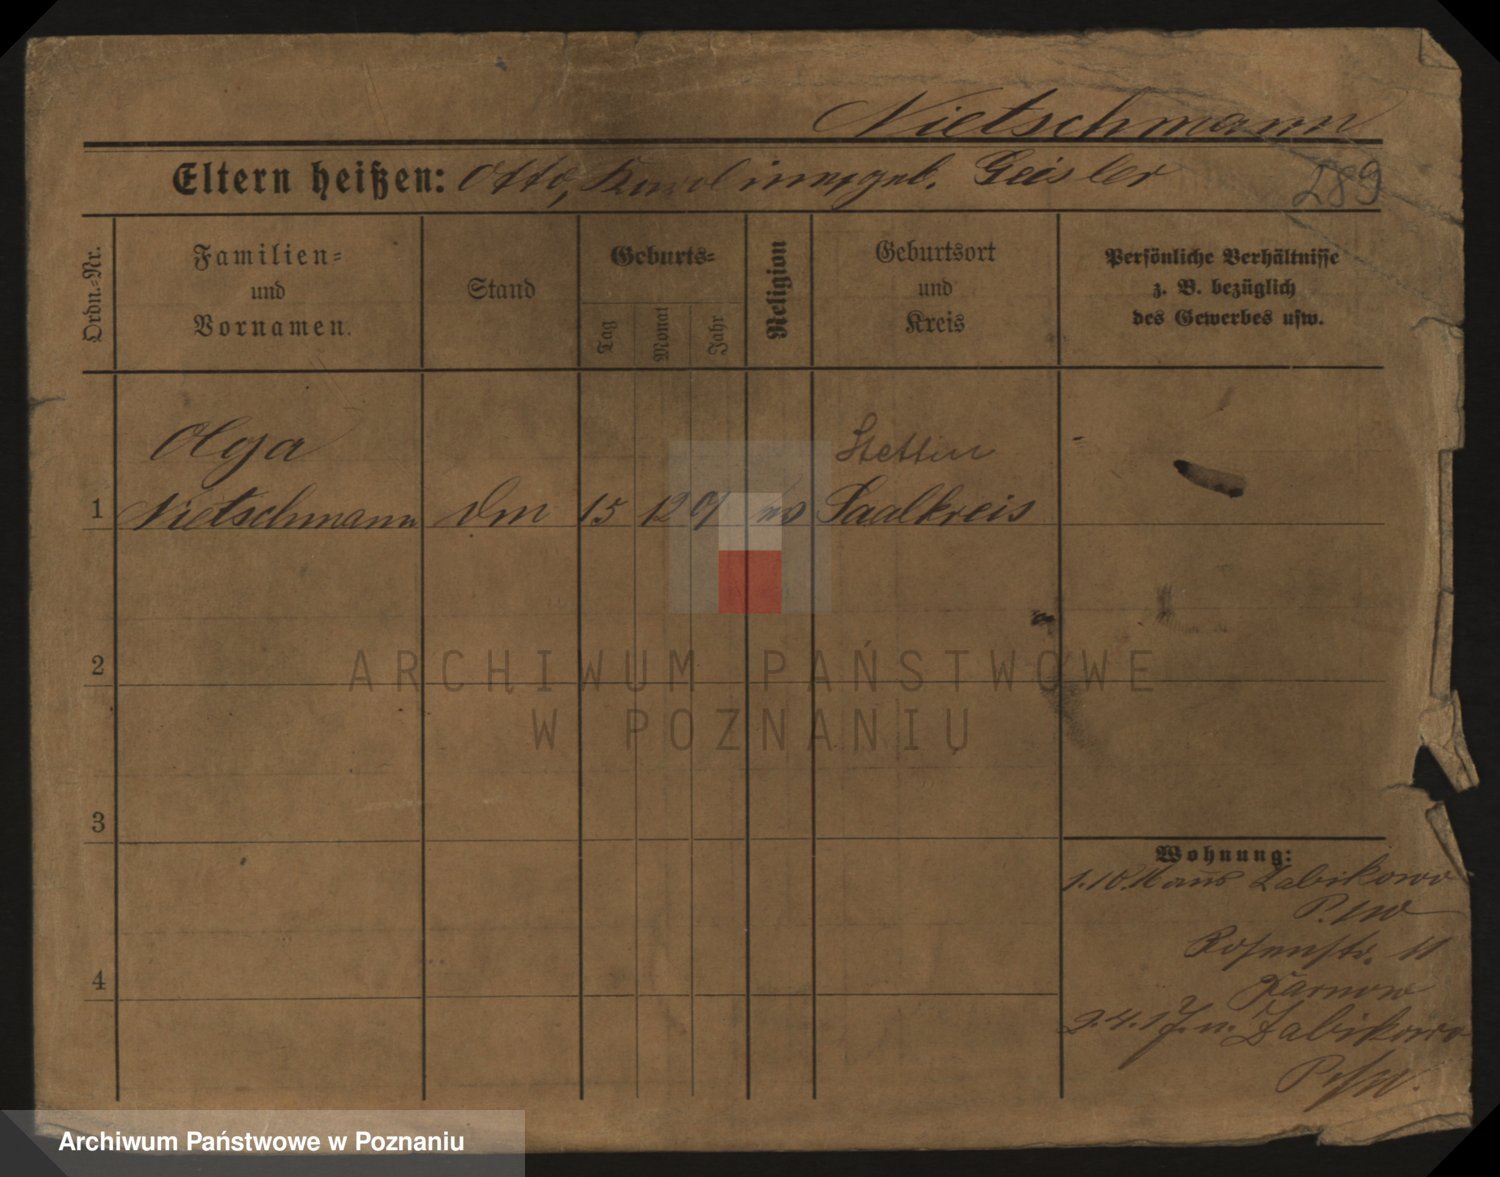 Nietschmann
Eltern heißen: Otto, geb. Geisler
289
Ordn.-Nr.
Familien-
und
Vornamen.
Stand
Geburts-
Tag
Monat
Jahr
Religion
Geburtsort
und
Kreis
Persönliche Verhältnisse
z. B. bezüglich
des Gewerbes usw.
Olga
Stettin
1 Nietschmann 15 12 Saalkreis
2
ARCHIWUM PAŃSTWOWE
W POZNANIU
3
Wohnung:
1.10. Zabikowo
Rosenstr. 11
4
2.4.17. n. Zabikowo
Archiwum Państwowe w Poznaniu